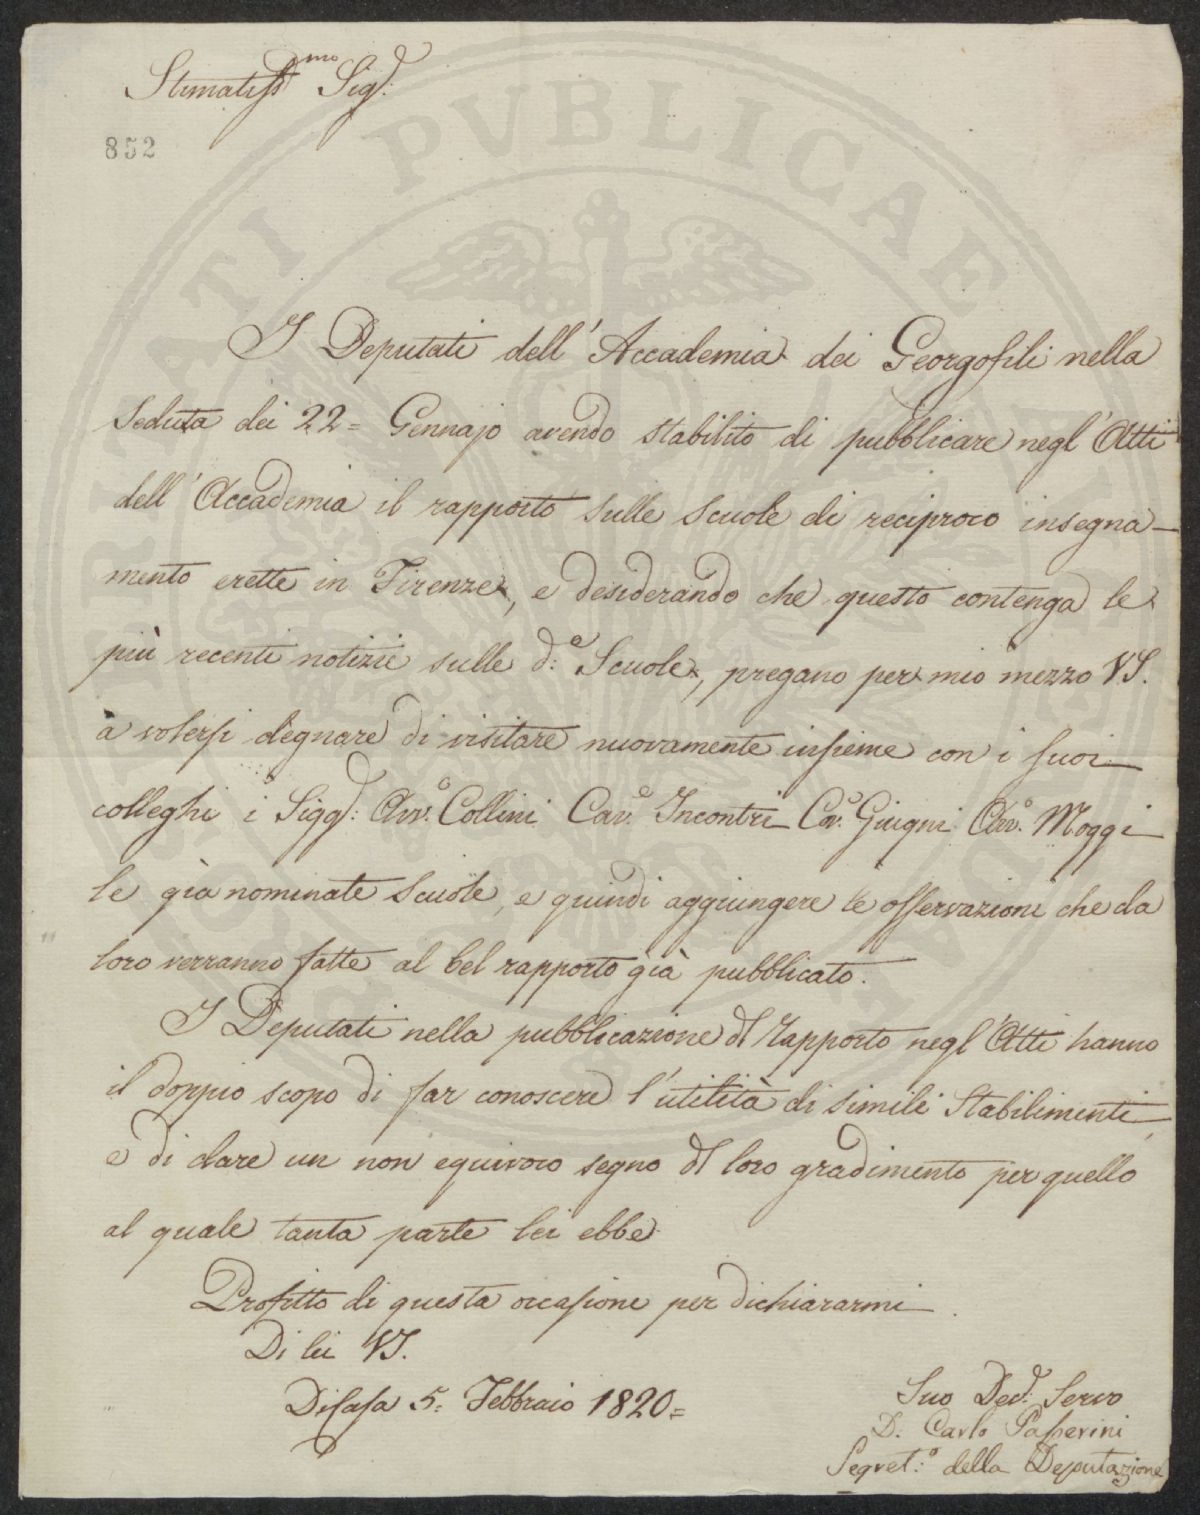 Stimatiss.mo Sig.r
852
I Deputati dell'Accademia dei Georgofili nella
Seduta dei 22= Gennajo avendo stabilito di pubblicare negl'Atti
dell'Accademia il rapporto sulle Scuole di reciproco insegna-
mento erette in Firenze, e desiderando che questo contenga le
più recenti notizie sulle d:e Scuole, pregano per mio mezzo VS.
a volersi degnare di visitare nuovamente insieme con i suoi
colleghi i Sigg.ri: Avv.o Collini Cav.o Incontri Cav.o Giugni Avv.o Moggi
le già nominate Scuole, e quindi aggiungere le osservazioni che da
loro verranno fatte al bel rapporto già pubblicato.
I Deputati nella pubblicazione del rapporto negl'Atti hanno
il doppio scopo di far conoscere l'utilità di simili Stabilimenti,
e di dare un non equivoco segno del loro gradimento per quello
al quale tanta parte lei ebbe.
Profitto di questa occasione per dichiararmi
Di lei VS.
Di Casa 5: Febbraio 1820=
Suo Dev: Servo
D. Carlo Passerini
Segret:o della Deputazione
PVBLICAE